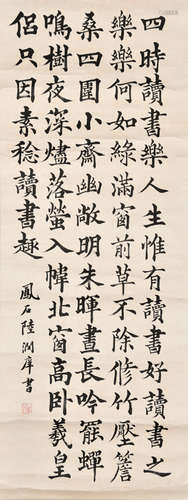 四時讀書樂人生惟有讀書好讀書之
樂樂何如綠滿窗前草不除修竹壓簷
桑四圍小齋幽敞明朱暉晝長吟罷蟬
鳴樹夜深燼落螢入幃北窗高臥羲皇
侶只因素稔讀書趣
鳳石陸潤庠書